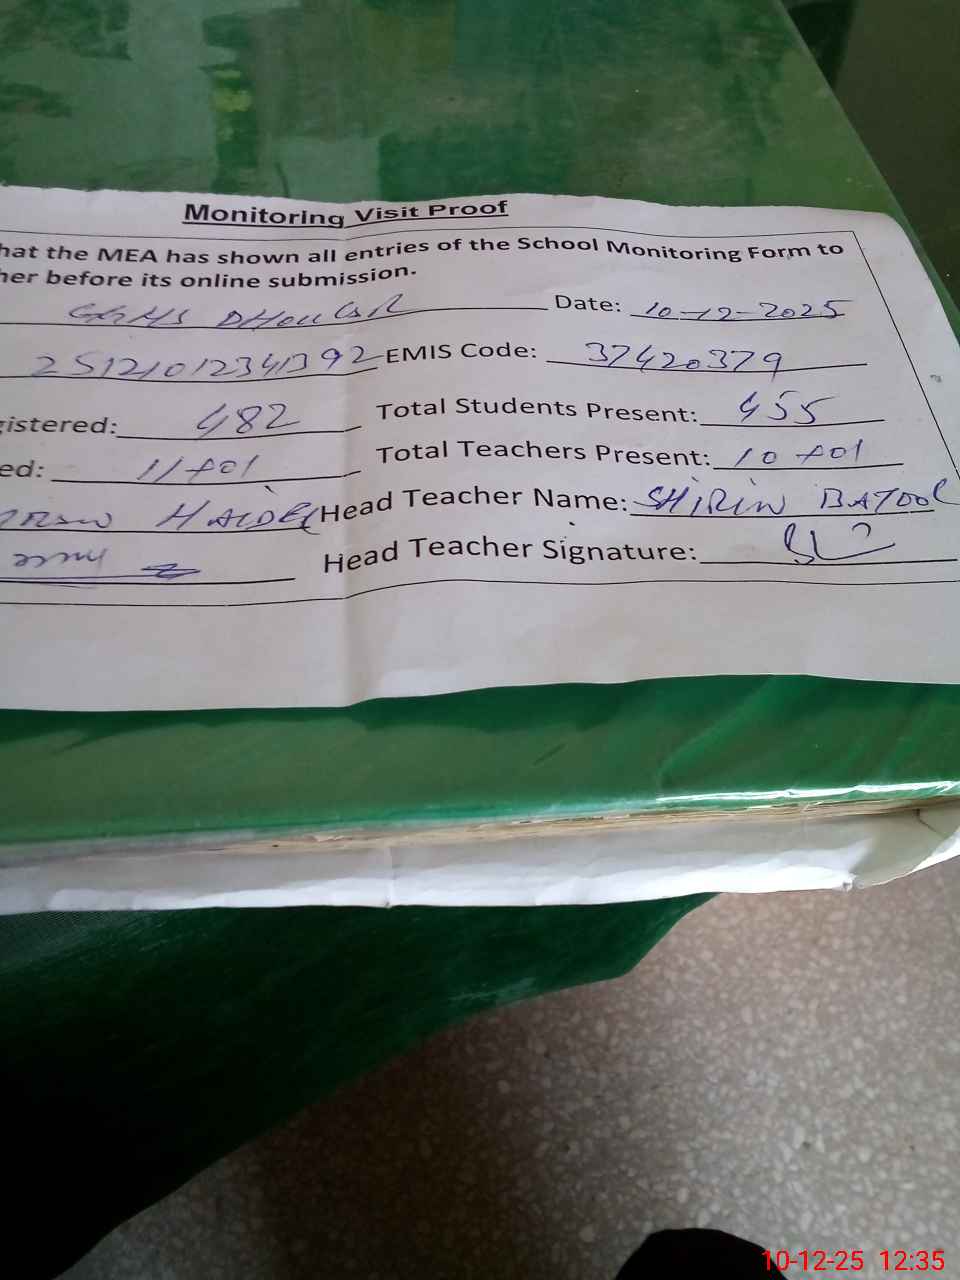 Monitoring Visit Proof
hat the MEA has shown all entries of the School Monitoring Form to
her before its online submission.
GGHS DHOULAR Date: 10-12-2025
25121012341392 EMIS Code: 37420379
gistered: 482 Total Students Present: 455
ed: 11+01 Total Teachers Present: 10+01
HAIDER Head Teacher Name: SHIRIN BATOOL
Head Teacher Signature:
10-12-25 12:35